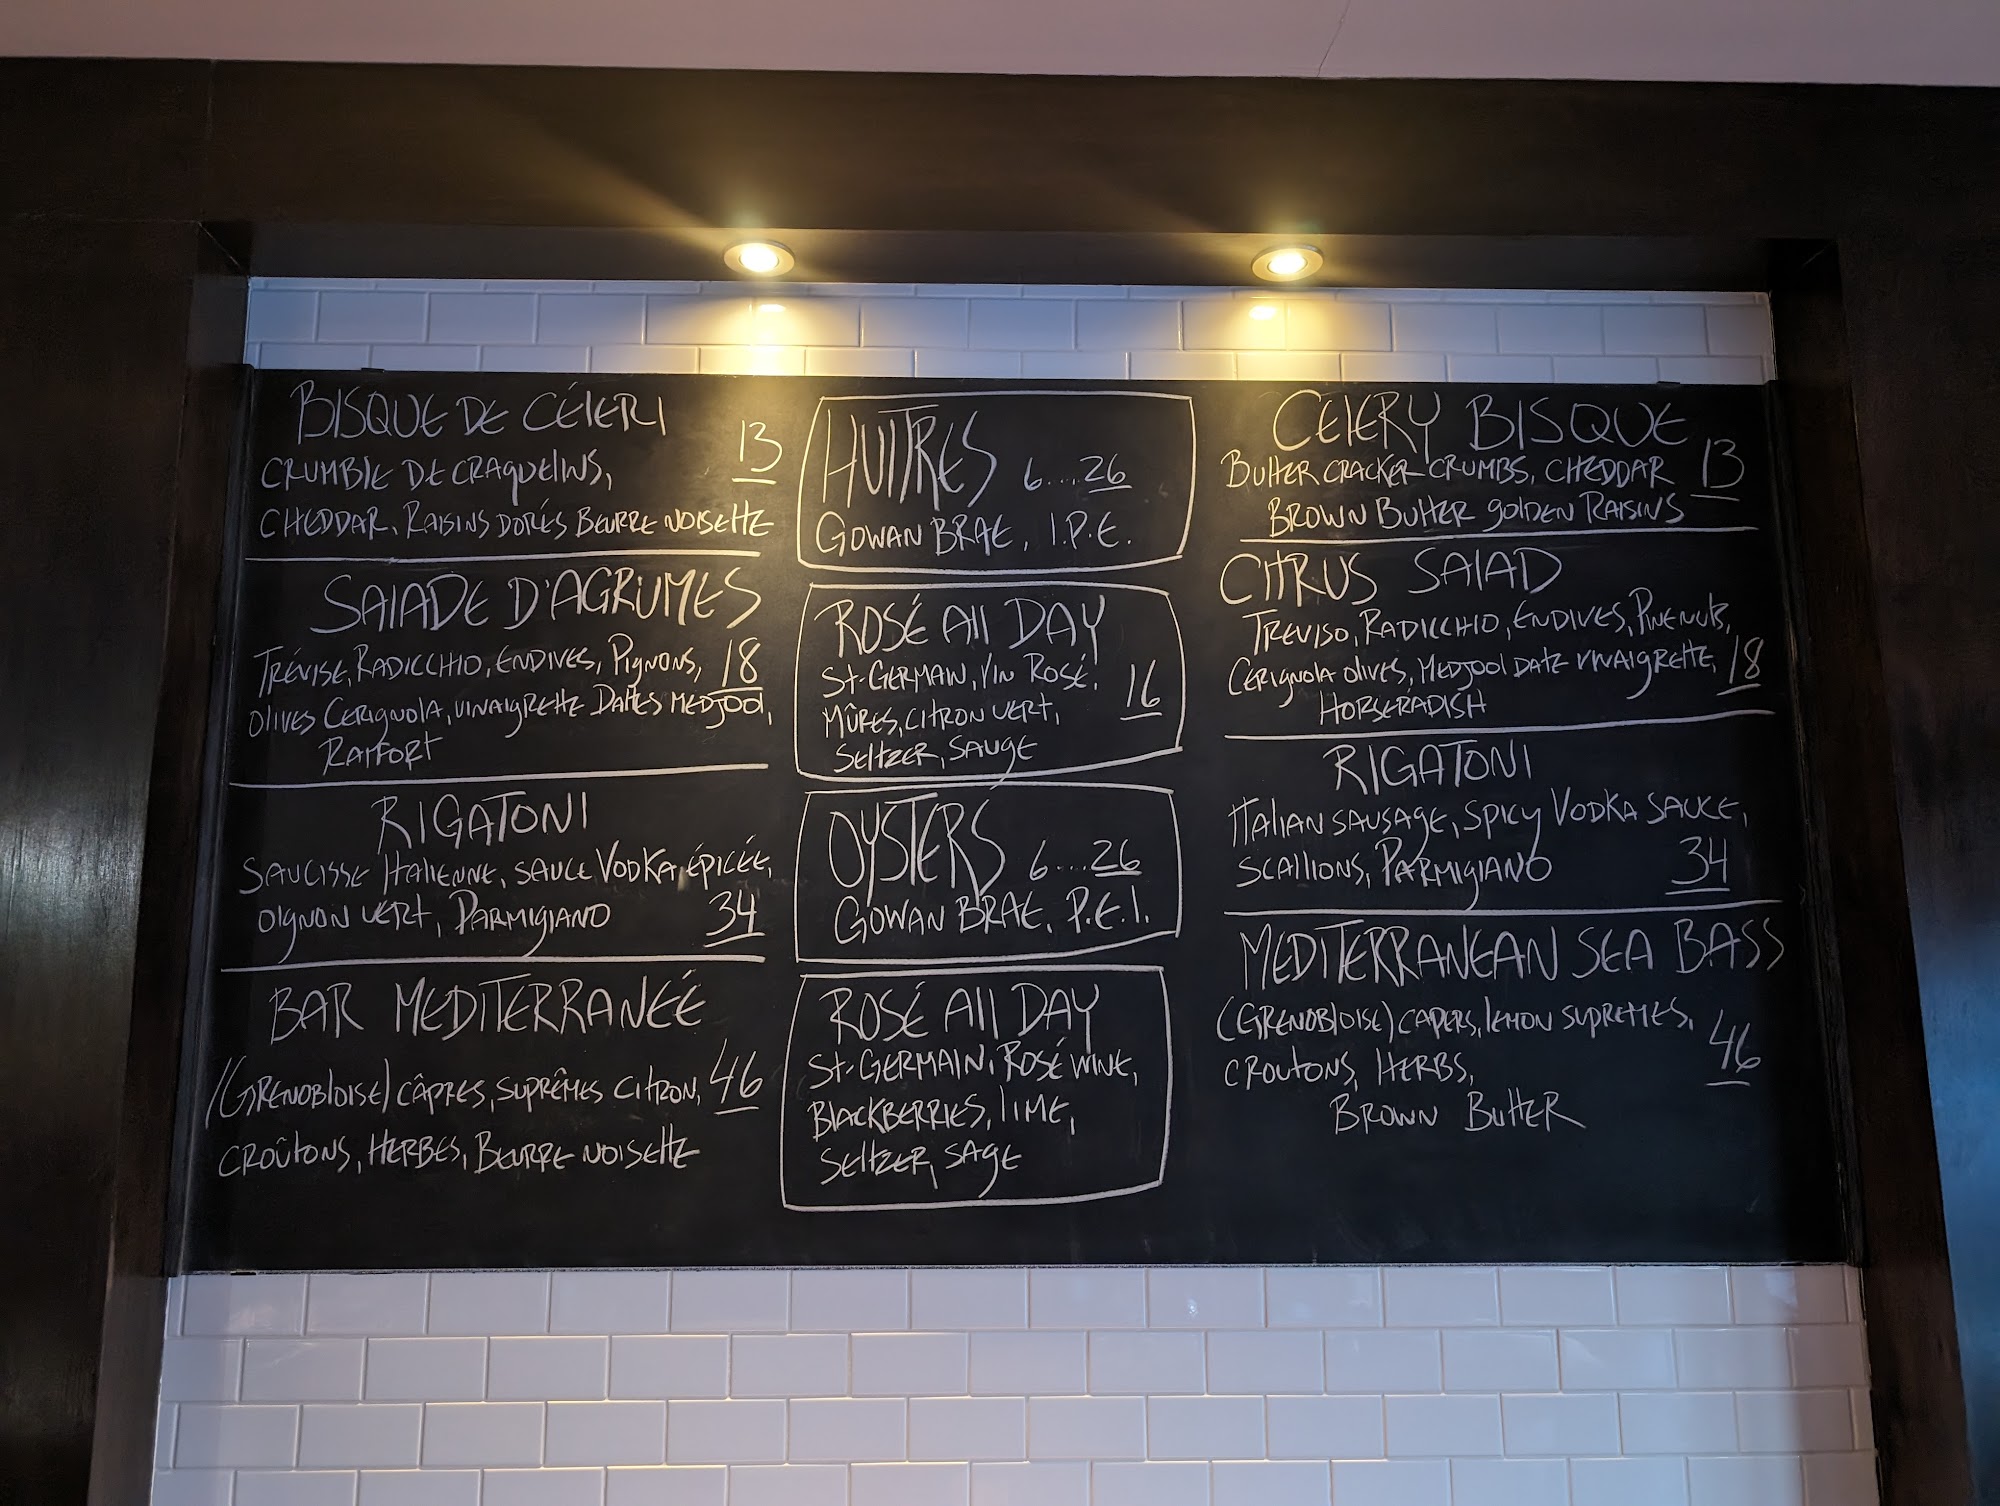 BISQUE DE CÉLERI
13
CRUMBLE DE CRAQUELINS,
CHEDDAR, RAISINS DORÉS BEURRE NOISETTE
SALADE D'AGRUMES
TRÉVISE, RADICCHIO, ENDIVES, PIGNONS, 18
OLIVES CERIGNOLA, VINAIGRETTE DATTES MEDJOOL,
RAIFORT
RIGATONI
SAUCISSE ITALIENNE, SAUCE VODKA ÉPICÉE,
OIGNON VERT, PARMIGIANO 34
BAR MEDITERRANÉE
(GRENOBLOISE) CÂPRES, SUPRÊMES CITRON, 46
CROÛTONS, HERBES, BEURRE NOISETTE
HUITRES 6....26
GOWAN BRAE, I.P.E.
ROSÉ All DAY
St-GERMAIN, VIN ROSÉ,
MÛRES, CITRON VERT, 16
SELTZER, SAUGE
OYSTERS 6....26
GOWAN BRAE, P.E.I.
ROSÉ All DAY
St-GERMAIN, ROSÉ WINE,
BLACKBERRIES, LIME,
SELTZER, SAGE
CELERY BISQUE
BUTTER CRACKER CRUMBS, CHEDDAR 13
BROWN BUTTER GOLDEN RAISINS
CITRUS SALAD
TREVISO, RADICCHIO, ENDIVES, PINENUTS,
CERIGNOLA OLIVES, MEDJOOL DATE VINAIGRETTE, 18
HORSERADISH
RIGATONI
ITALIAN SAUSAGE, SPICY VODKA SAUCE,
SCALLIONS, PARMIGIANO 34
MEDITERRANEAN SEA BASS
(GRENOBLOISE) CAPERS, LEMON SUPREMES,
CROUTONS, HERBS, 46
BROWN BUTTER